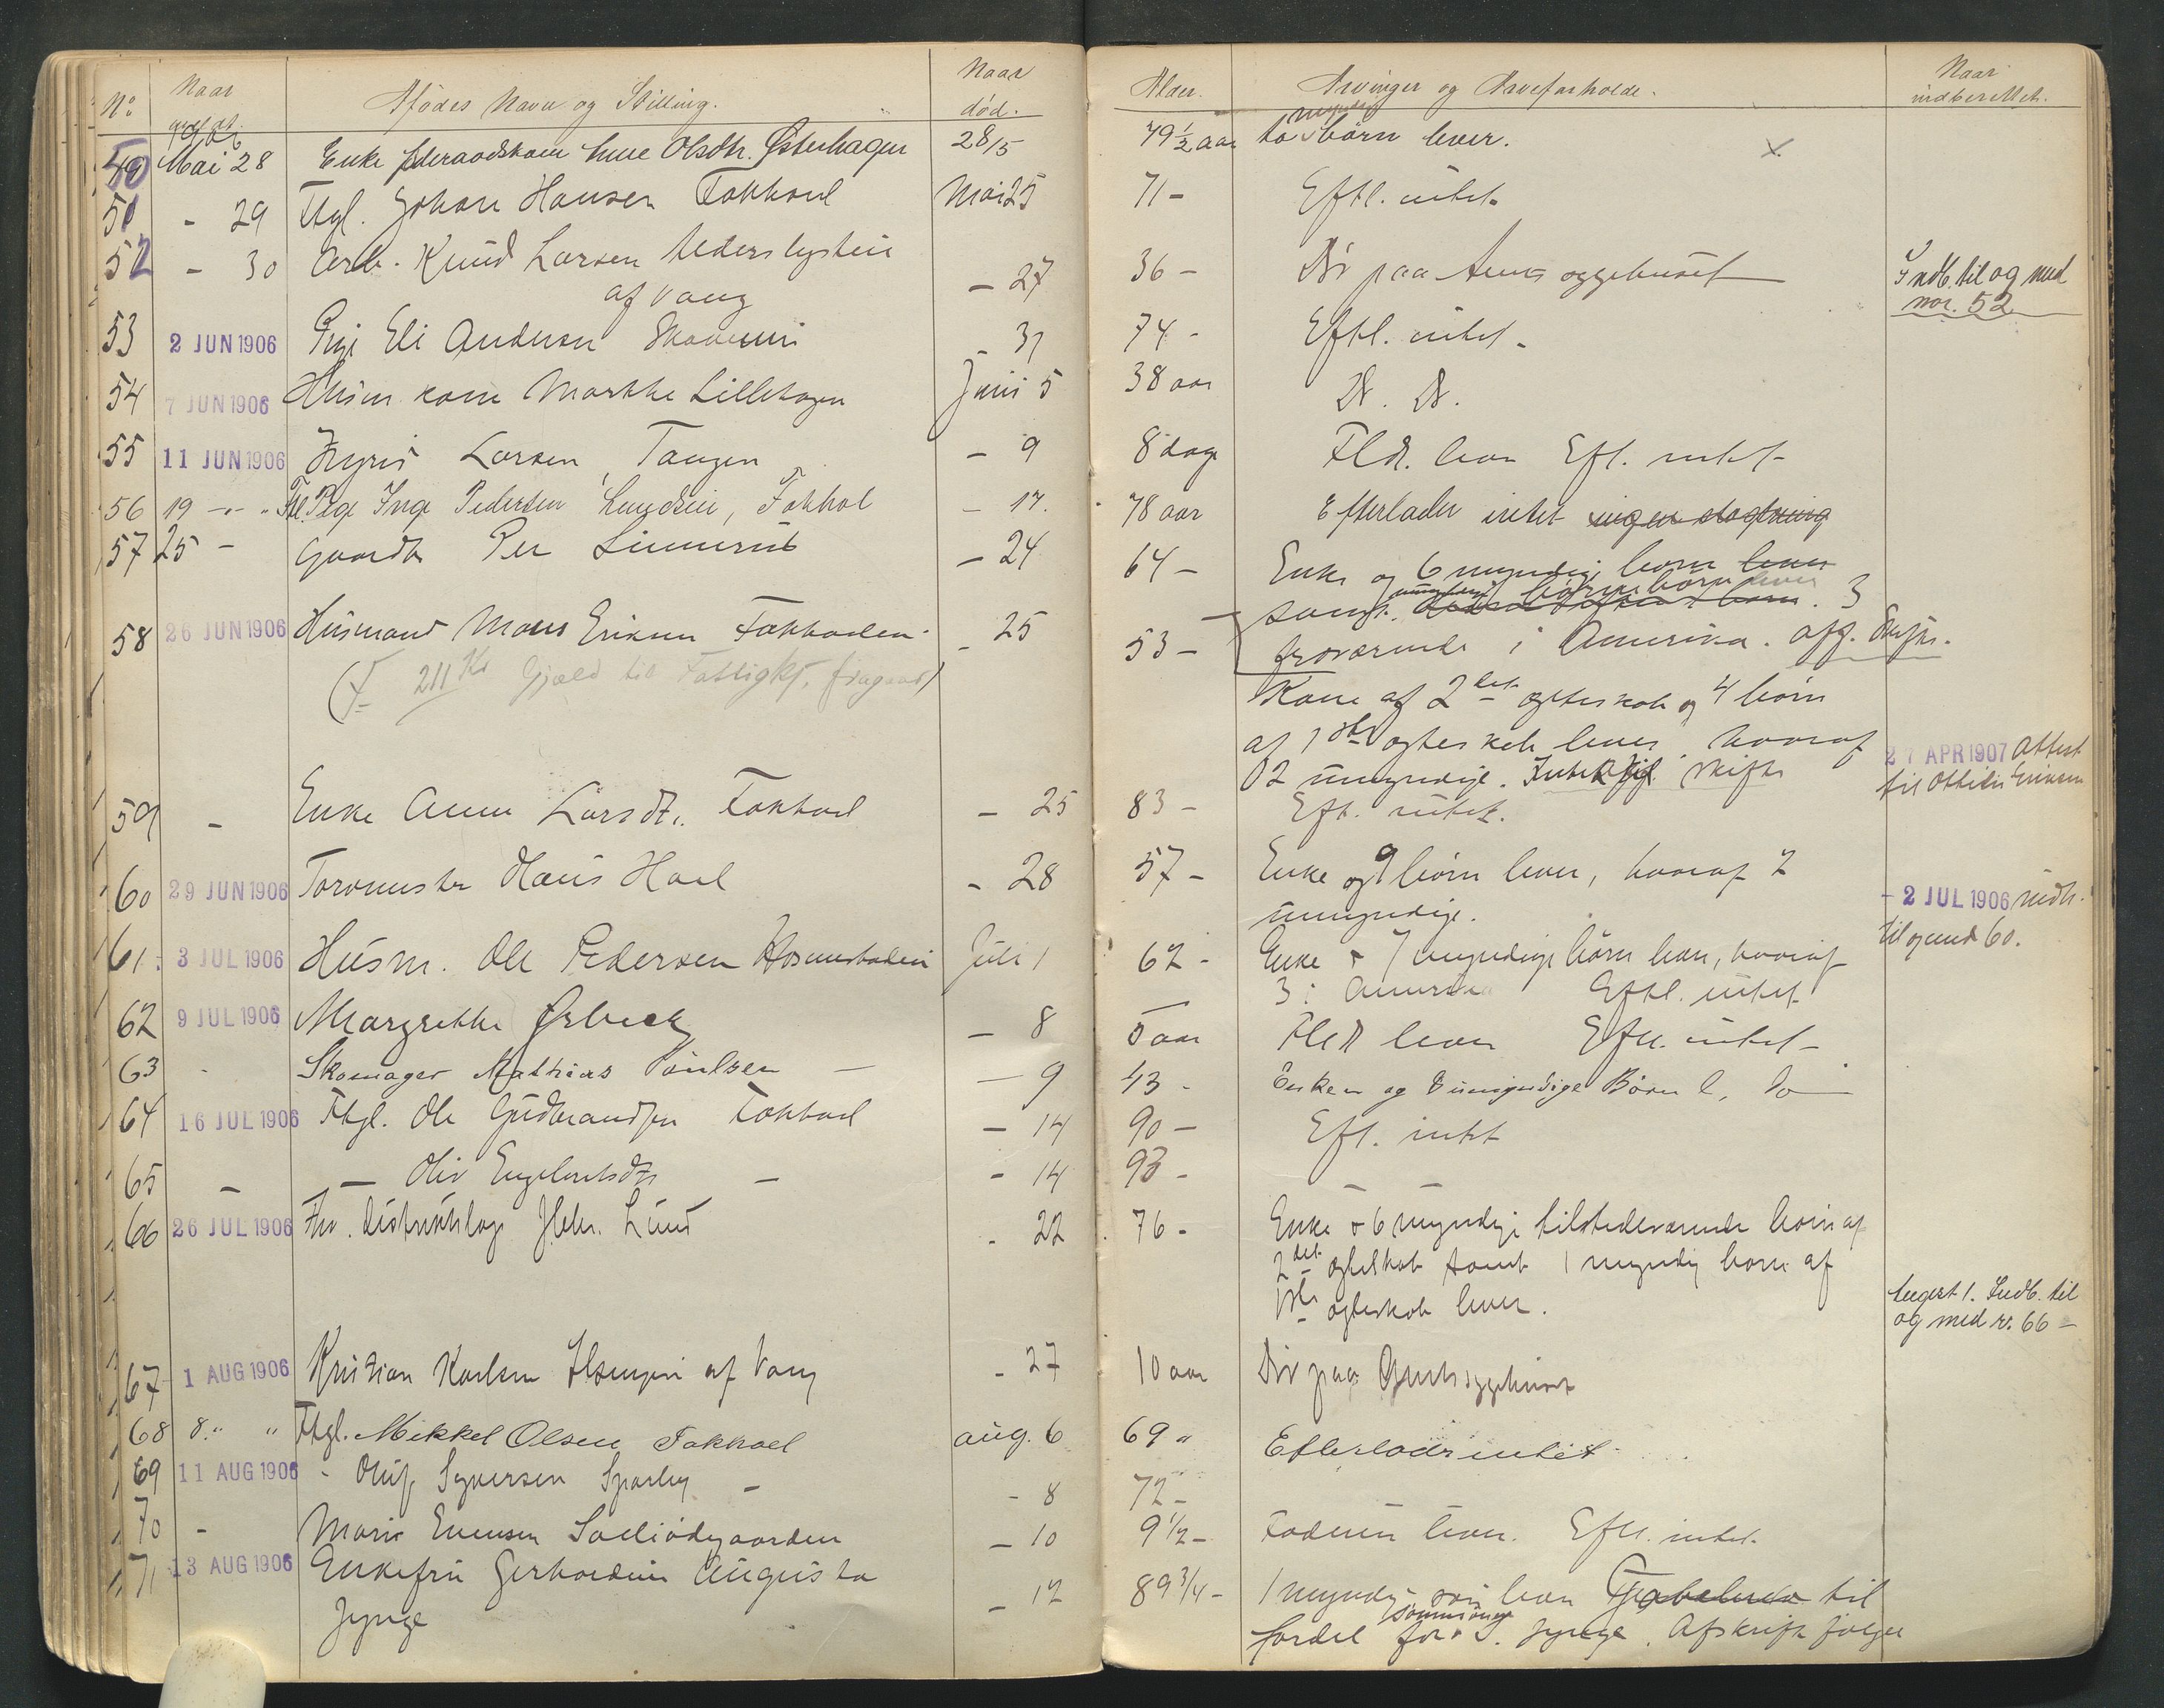 No Naar Afdødes Navn og Stilling. Naar død. Alder. Arvinger og Arveforholde. Naar indberettet.
50 Mai 28 Enke Føderaadskone Olsdtr. Østerhagen 28/5 79 1/2 aar to myndige børn lever. X
51 - 29 Ftgl. Johan Hansen Fokhoel Mai 25 71 - Eftl. intet.
52 - 30 Arb. Knud Larsen
af Vang - 27 36 - Dør paa Amtssygehuset Indb. til og med
nr. 52
53 2 JUN 1906 Pige Eli Andersen - 31 74 - Eftl. intet -
54 7 JUN 1906 Husm. kone Marthe Lillehagen Juni 5 38 aar D. D.
55 11 JUN 1906 Larsen, Tangen - 9 8 dage Fldr. lever Eft. intet -
56 19 - " - Ftl. Pige Inge Pedersen, Fokhol - 17. 78 aar Efterlader intet
57 25 - Gaardbr. Per Linnerud - 24 64 - Enke og 6 myndige børn lever
samt myndige børnebørn lever. 3
fraværende i Amerika. Off. Skifte.
58 26 JUN 1906 Husmand Mons Eriksen - 25 53 -
(÷ 211 Kr Gjæld til Fattigk.)
Kone af 2det ægteskab og 4 børn
af 1ste ægteskab lever, hvoraf
2 umyndige. Intet skifte
27 APR 1907 Attest
til Eriksen
59 - Enke Anne Larsdtr. Fokhoel - 25 83 - Eft. intet.
60 29 JUN 1906 Torvmester Hans Hoel - 28 57 - Enke og 9 børn lever, hvoraf 2
umyndige.
- 2 JUL 1906 indb.
til og med 60.
61. 3 JUL 1906 Husm. Ole Pedersen Juli 1 62 - Enke + 7 myndige børn lever, hvoraf
3 i Amerika Eftl. intet
62 9 JUL 1906 Margrethe Ørbeck - 8 5 aar Fldr lever Eftl. intet -
63 - Skomager Mathias Poulsen - - 9 43 - Enken og umyndige Børn l, do
64 16 JUL 1906 Ftgl. Ole Gudbrandsen Fokhoel - 14 90 - Eft. intet
65 - - Oliv Engebretsdtr - - 14 93 - - -
66 26 JUL 1906 Fhv. Distriktslæge Lund - 22 76 - Enke + 6 myndige tilstedeværende børn af
2det ægteskab samt 1 myndig barn af
1ste ægteskab lever.
August 1. Indb. til
og med nr. 66 -
67 1 AUG 1906 Kristian Karlsen af Vang - 27 10 aar Dør paa Amtssygehuset
68 8. " " Ftgl. Mikkel Olsen Fokhoel aug. 6 69 " Efterlader intet
69 11 AUG 1906 - Oluf Syversen Sparby - - 8 72 -
70 - Marie Evensen - 10 9 1/2 - Faderen lever. Eftl. intet.
71 13 AUG 1906 Enkefru Gerhardine Augusta
Jynge - 12 89 3/4 - 1 myndig søn lever til
fordel for S. Jynge. Afskrift følger